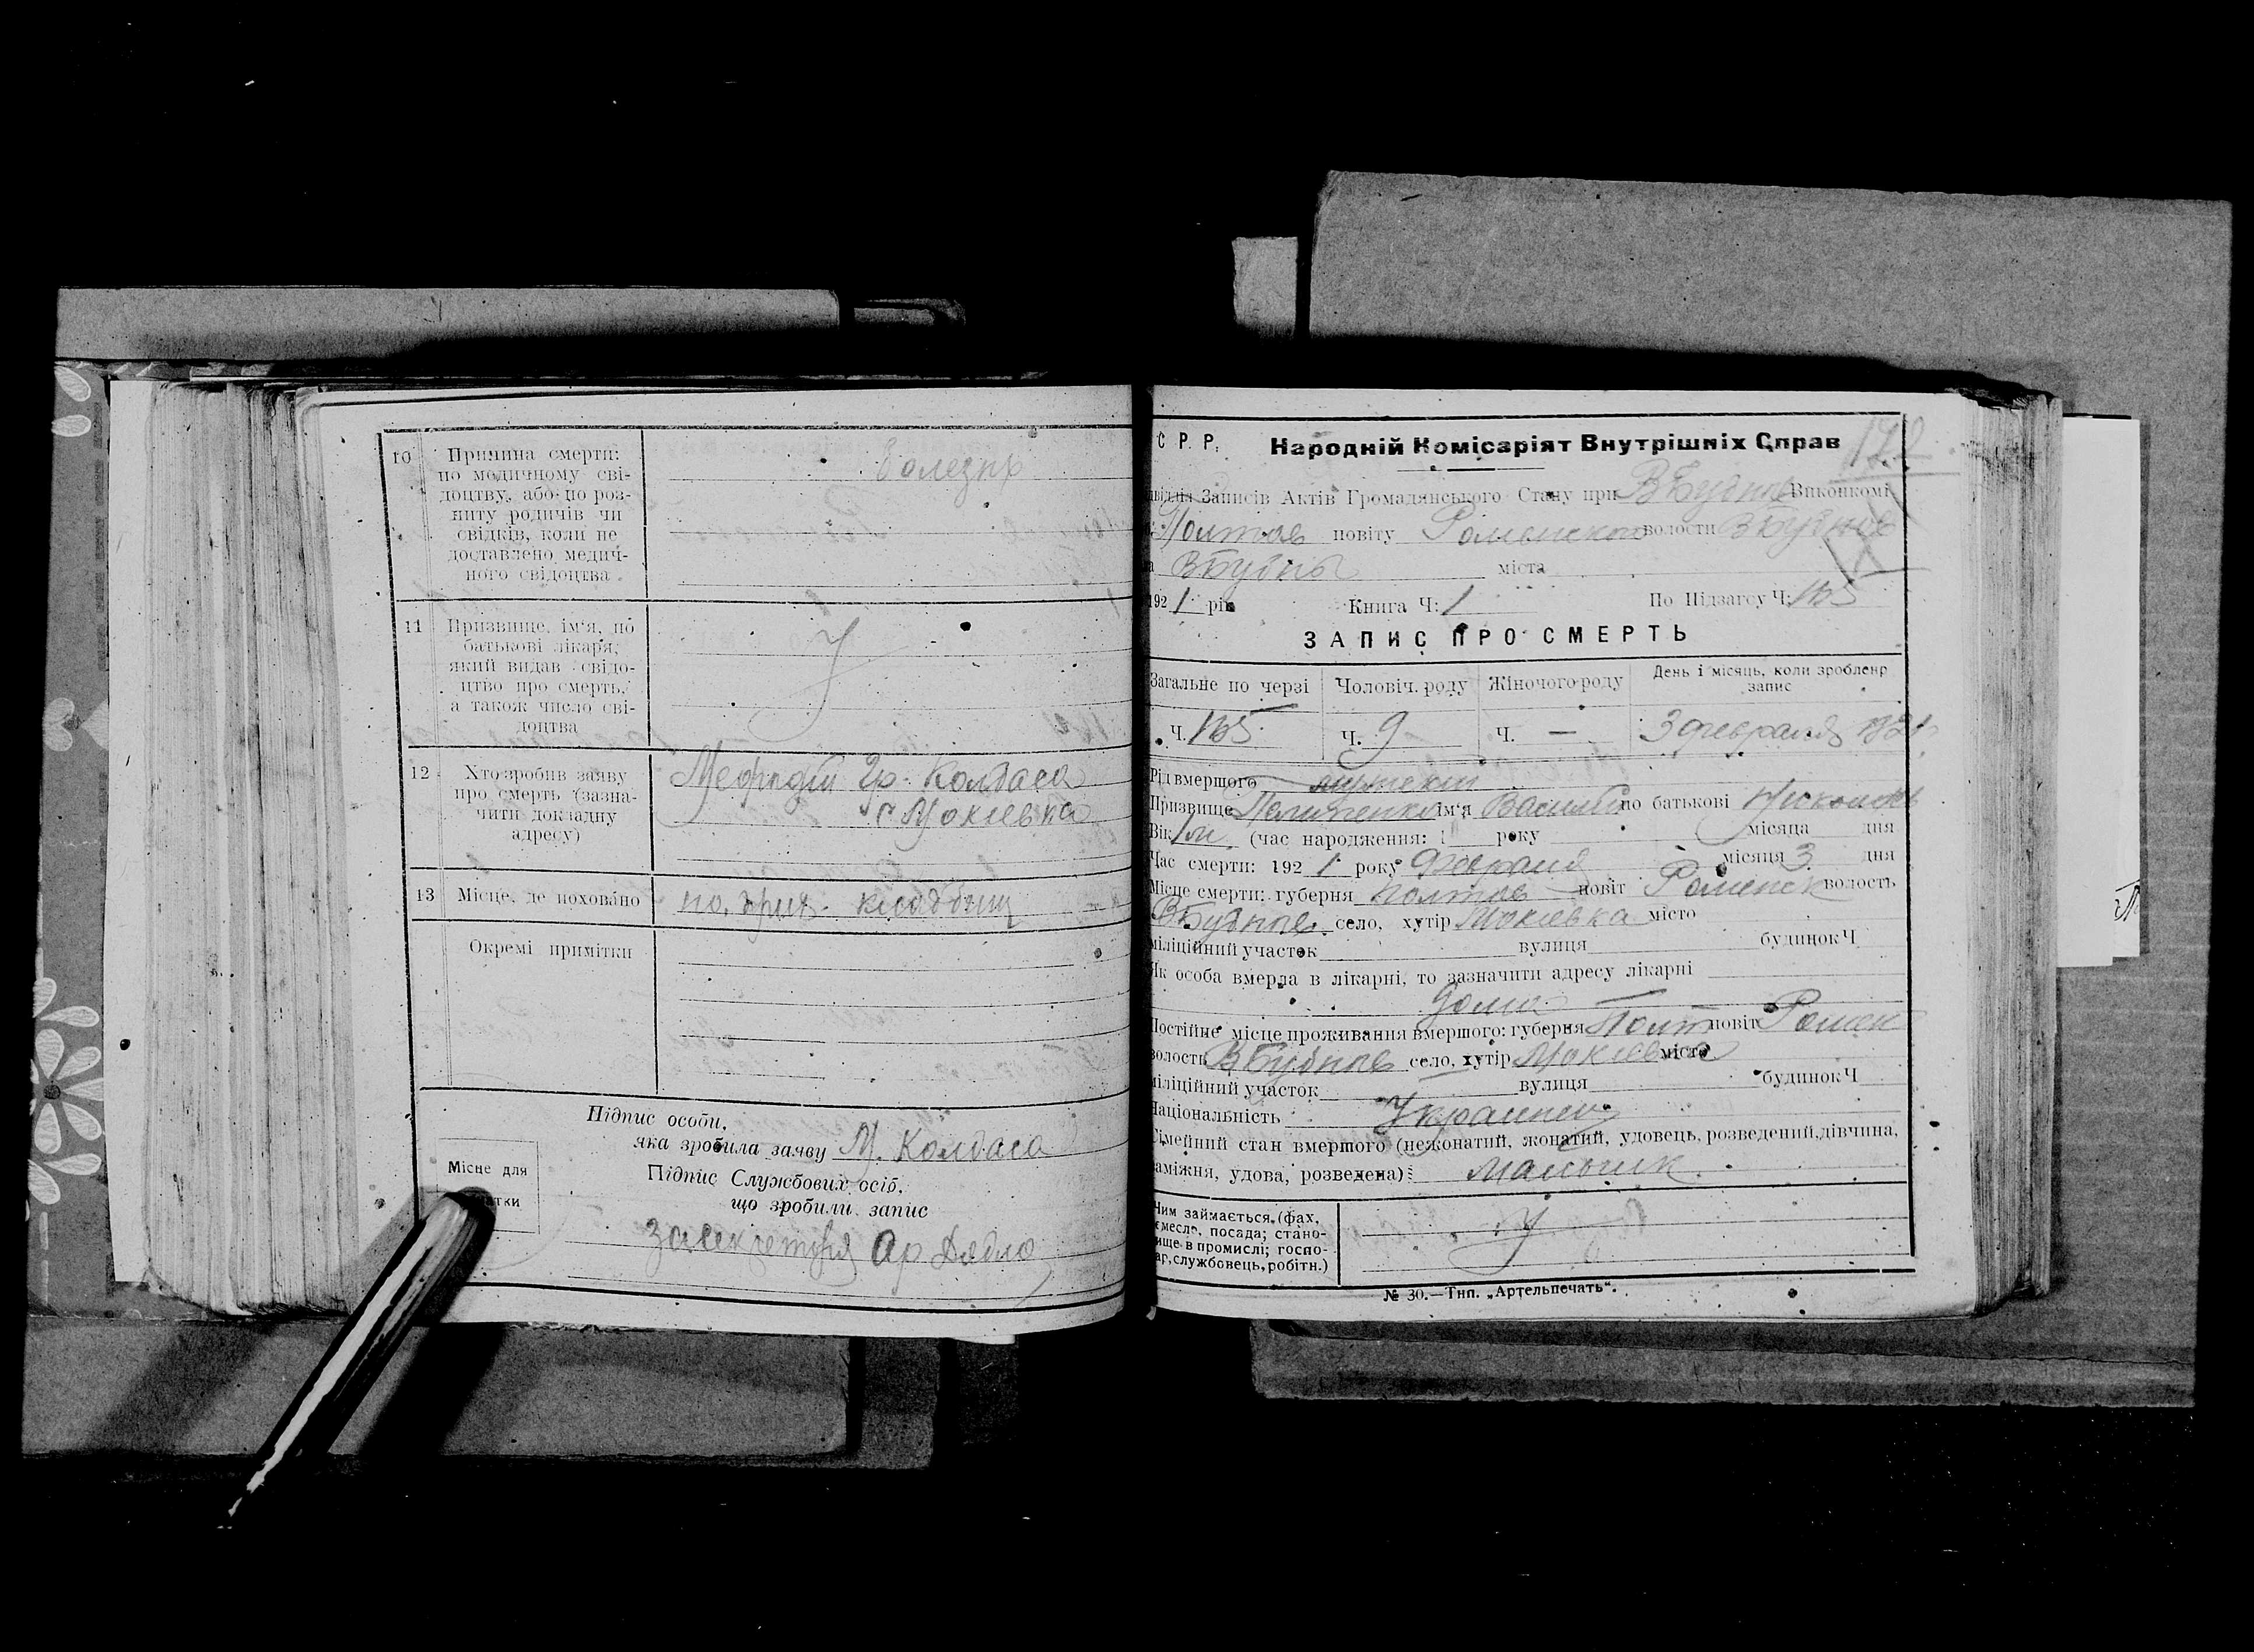 10 Причина смерти:
по медичному сві-
доцтву, або по роз-
питу родичів чи
свідків, коли не
доставлено медич-
ного свідоцтва
болезнь
11 Призвище, ім'я, по
батькові лікаря,
який видав свідо-
цтво про смерть,
а також число сві-
доцтва
12 Хто зробив заяву
про смерть (зазна-
чити докладну
адресу)
Мефодій Гр. Колбаса
с. Мокіевка
13 Місце, де поховано
на кладбищ
Окремі примітки
Підпис особи,
яка зробила заяву М. Колбаса
Підпис Службових осіб,
що зробили запис
Місце для
тки
За секретаря
С. Р. Р.
Народній Комісаріят Внутрішніх Справ
172
Записів Актів Громадянського Стану при ВБубнов Виконкомі
Полтав повіту Роменско волости ВБубнов
ВБубны міста
1921 рік Книга Ч: 1 По Підзагсу Ч: 155
ЗАПИС ПРО СМЕРТЬ
Загальне по черзі Чоловіч. роду Жіночого роду День і місяць, коли зроблено запис
Ч. 155 Ч. 9 Ч. — 3 февраля 1921
Рід вмершого
Призвище ім'я Василь по батькові
Вік 1 м. (час народження: 1 року місяца дня
Час смерти: 1921 року Февраля місяця 3 дня
Місце смерти: губерня Полтав повіт Роменск волость
ВБубнов. село, хутір Мокіевка місто
міліційний участок вулиця будинок Ч
Як особа вмерла в лікарні, то зазначити адресу лікарні
дома
Постійне місце проживання вмершого: губерня Полт повіт Ромен
волость ВБубнов село, хутір Мокіевка місто
міліційний участок вулиця будинок Ч
Національність Украинец
Сімейний стан вмершого (нежонатий, жонатий, удовець, розведений, дівчина,
заміжня, удова, розведена) мальчик
Чим займається (фах,
ремесло, посада; стано-
вище в промислі; госпо-
дар, службовець, робітн.)
№ 30.—Тип. „Артельпечать".